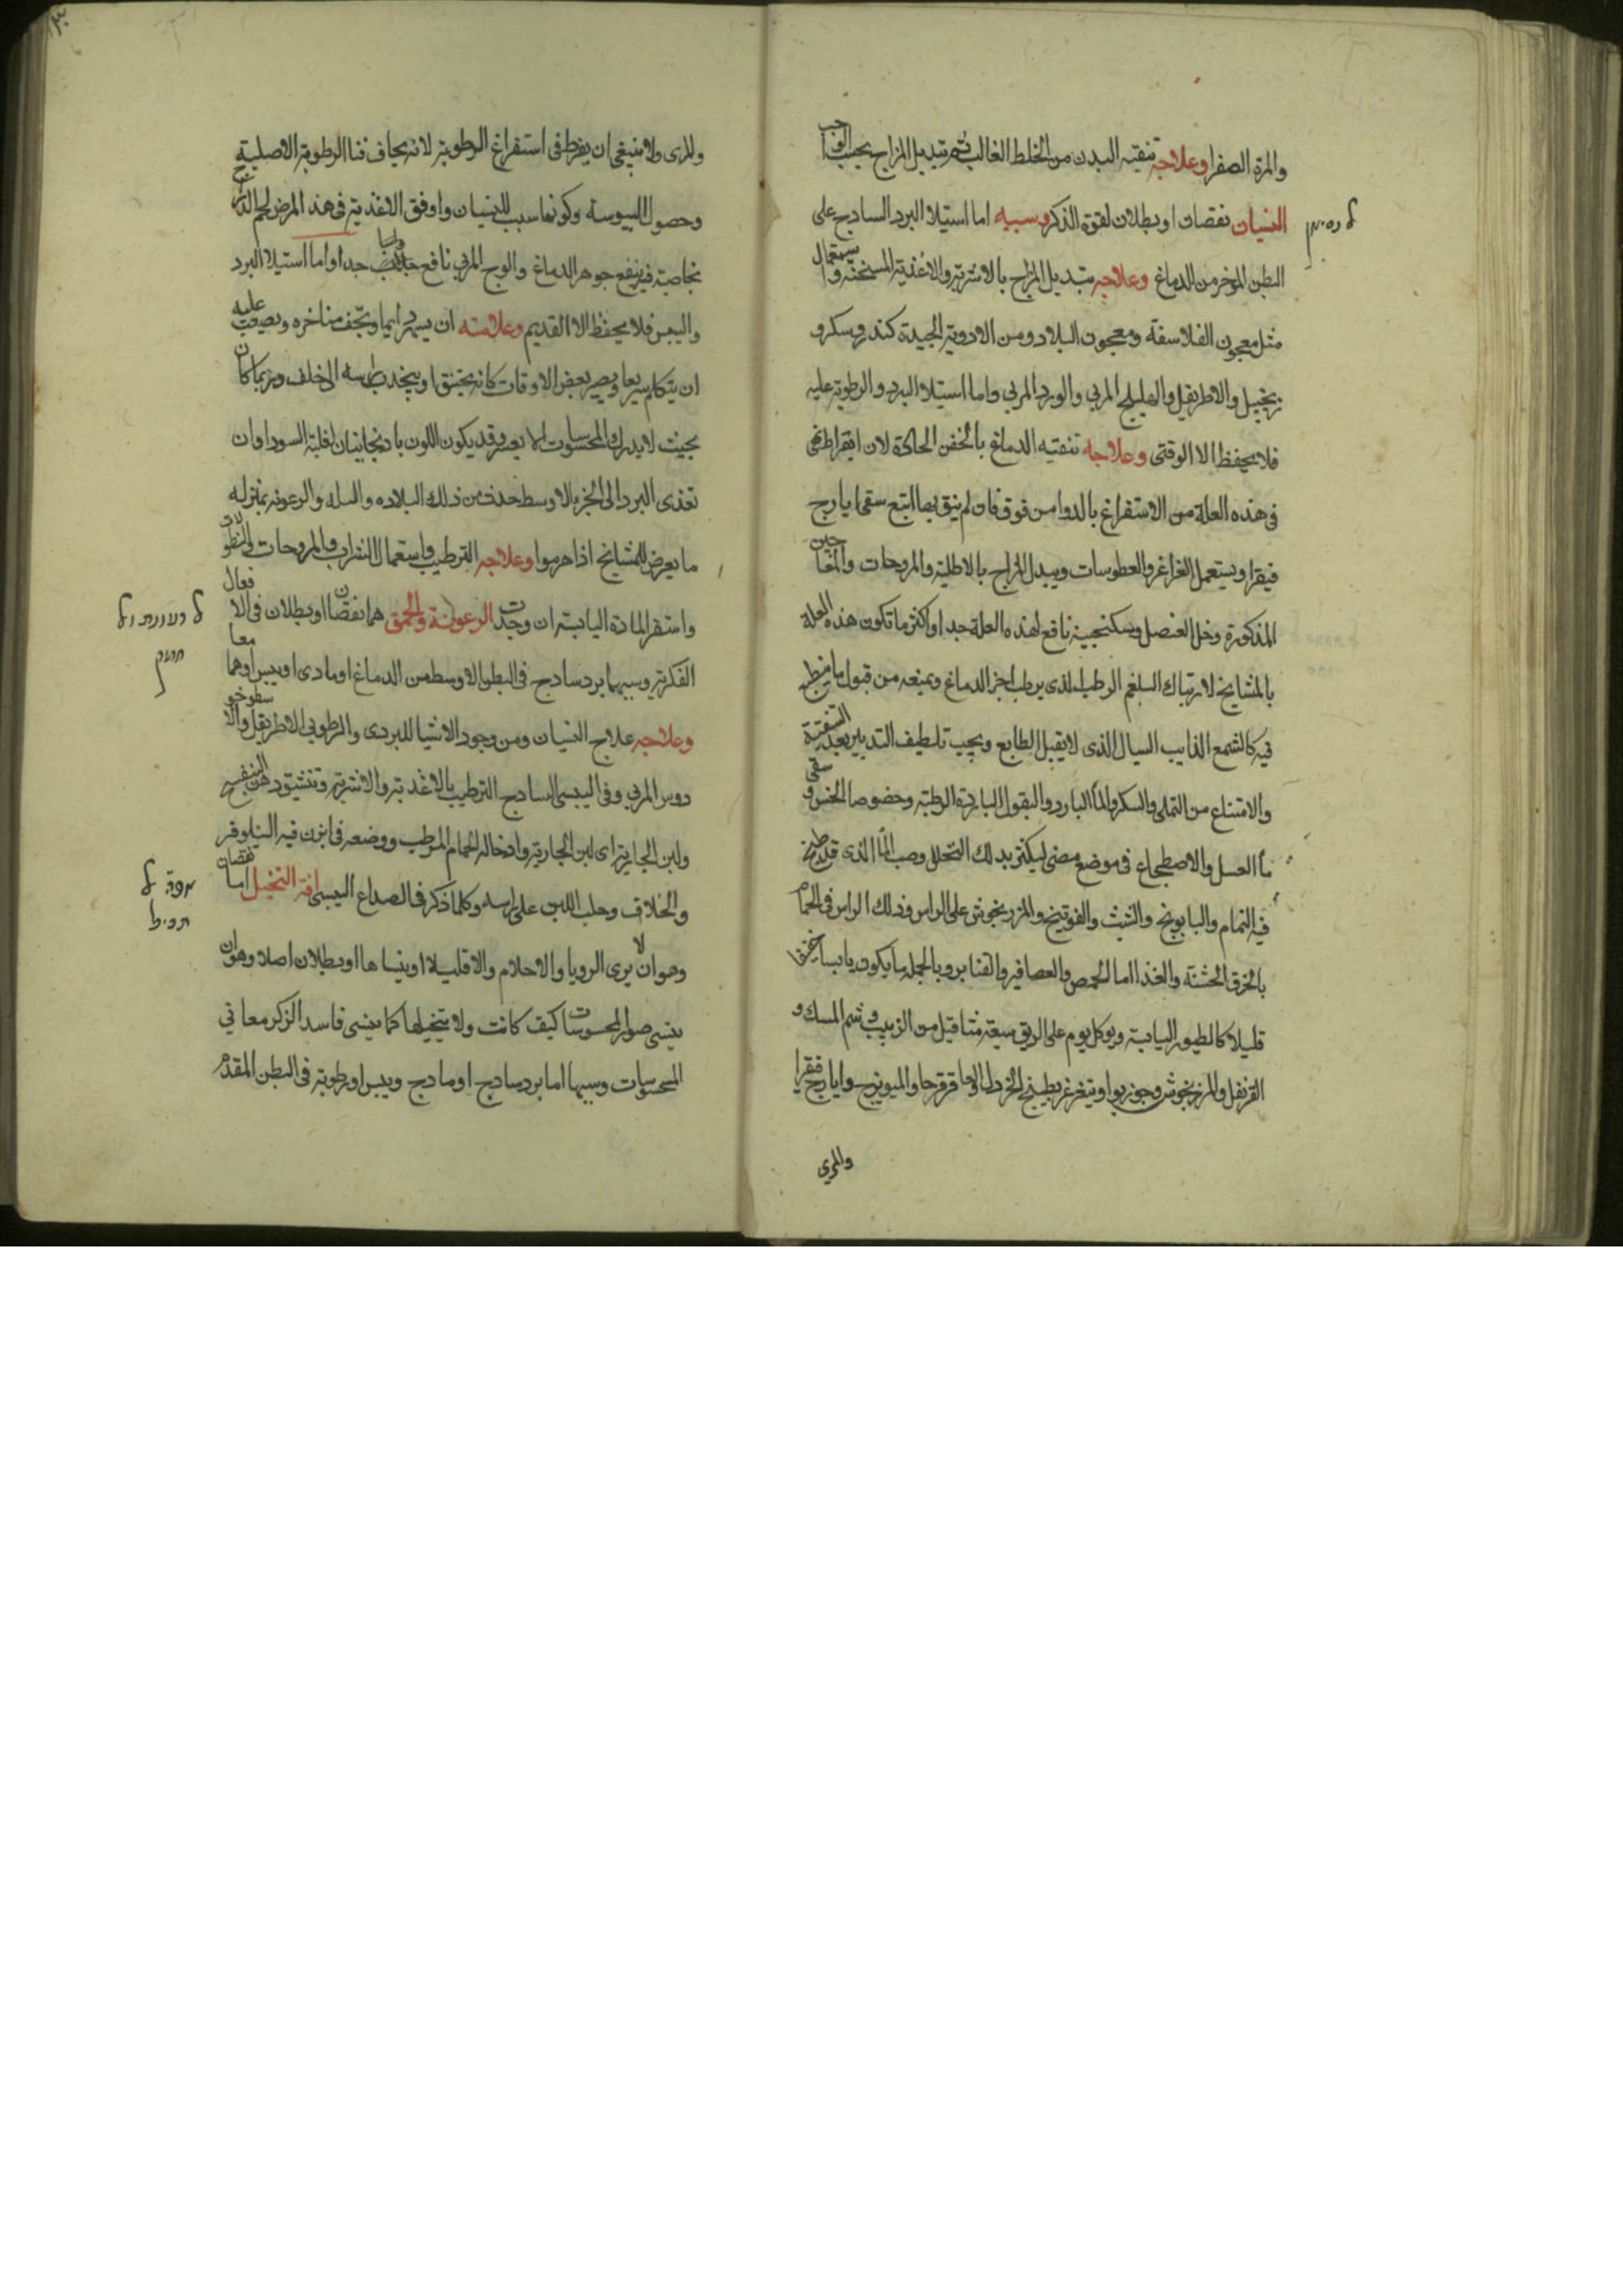 والمرة الصفرا وعلاجه تنقيته البدن من الخلط الغالب ثم تبديل المزاج بحيب الواجب
النسيان نقصان او بطلان لقوة الذكر وسببه اما استيلا البرد السادج على
البطن الموخر من الدماغ وعلاجه تبديل المزاج بالاشربة والاغذية المسخنة واستعمال
مثل معجون الفلاسفة ومعجون البلادر ومن الادوية الجيدة كندر وسكر و
زنجبيل والاطريفل والهليلج المربي والورد المربي واما استيلا البرد والرطوبة عليه
فلا يحفظ الا الوقتى وعلاجه تنقيه الدماغ بالحقن الحادة لان ابقراط نهى
فى هذه العلة من الاستفراغ بالدوا من فوق فان لم ينق بها اتبع سقى ايارج
فيقرا ويستعمل الغراغر والعطوسات ويبدل المزاج بالاطلية والمروحات والمعاجين
المذكورة وخل العنصل وسكنجبينه نافع لهذه العلة جدا واكثر ما تكون هذه العلة
بالمشايخ لارتباك البلغم الرطب الذى يرطب اجزا الدماغ ويمنعه من قبول ما ينطبع
فيه كالشمع الذايب السيال الذى لا يقبل الطابع ويجب تلطيف التدبير بعد التنقية
والامتناع من التملى والسكر والما البارد والبقول الباردة الرطبة وخصوصا الخس و سقى
ما العسل والاصطجاع فى موضع مضى ليكثر بدلك التحلل وصب الما الذى قد طبخ
فيه النمام والبابونج والشبث والفوتينج والمرزنجوش على الراس ودلك الراس فى الحمام
بالخرق الخشنة والغذا اما الحمص والعصافير والقنابر وبالجملة ما يكون يابسا
قليلا كالطيور اليابسة ويوكل يوم على الريق سبعة مثاقيل من الزبيب و شم المسك و
القرنفل والمرزنجوش وجوزبوا ويتغرغر بطبيخ الخردل والعاقرقرحا والميويزج وايارج فيقرا
والمرى
ל נסיאן
والمرى ولا ينبغى ان يفرط فى استفراغ الرطوبة لانه يخاف فنا الرطوبة الاصلية
وحصول اليبوسة وكونها سبب للنسيان واوفق الاغذية فى هذ المرض لحم الدراج
بخاصية فيه ينفع جوهر الدماغ والوج المربي نافع جدا واما استيلا البرد
واليبس فلا يحفظ الا القديم وعلامته ان يسهر دايما وتجف مناخره ويصعب عليه
ان يتكلم سريعا ويصير بعض الاوقات كانه يختنق او ينجذب راسه الى خلف وربما كان
بحيث لا يدرك المحسوسات الا بعسر وقد يكون اللون بادنجانيا لغلبة السودا وان
تعدى البرد الى الجز الاوسط حدث من ذلك البلاده والبله والرعونة بمنزله
ما يعرض للمشايخ اذا هرموا وعلاجه الترطيب واستعمال الشراب والمروحات والنطولات
واستفرا المادة اليابسة ان وجدت الرعونة والحمق هما نقصان او بطلان فى الافعال
الفكرية وسببها برد سادج فى البطن الاوسط من الدماغ او مادى او يبس اوهما معا
وعلاجه علاج النسيان ومن وجود الاشيا للبردى والرطوبى الاطريفل والاسطوخو
دوس المربي وفى اليبسى السادج الترطيب بالاغذية والاشربة وتنشيق دهن البنفسج
ولبن الجارية اى لبن الجارية وادخاله الحمام المرطب ووضعه فى ابزن فيه النيلوفر
والخلاف وحلب اللبن على راسه وكلما ذكر فى الصداع اليبسى افة التخيل اما نقصان
وهو ان لا يرى الرويا والاحلام والا قليلا او ينساها او بطلان اصلا وهو ان
ينسى صور المحسوسات كيف كانت ولا يتخيلها كما ينسى فاسد الزكر معانى
المحسوسات وسببها اما برد سادج او مادج ويبس او رطوبة فى البطن المقدم